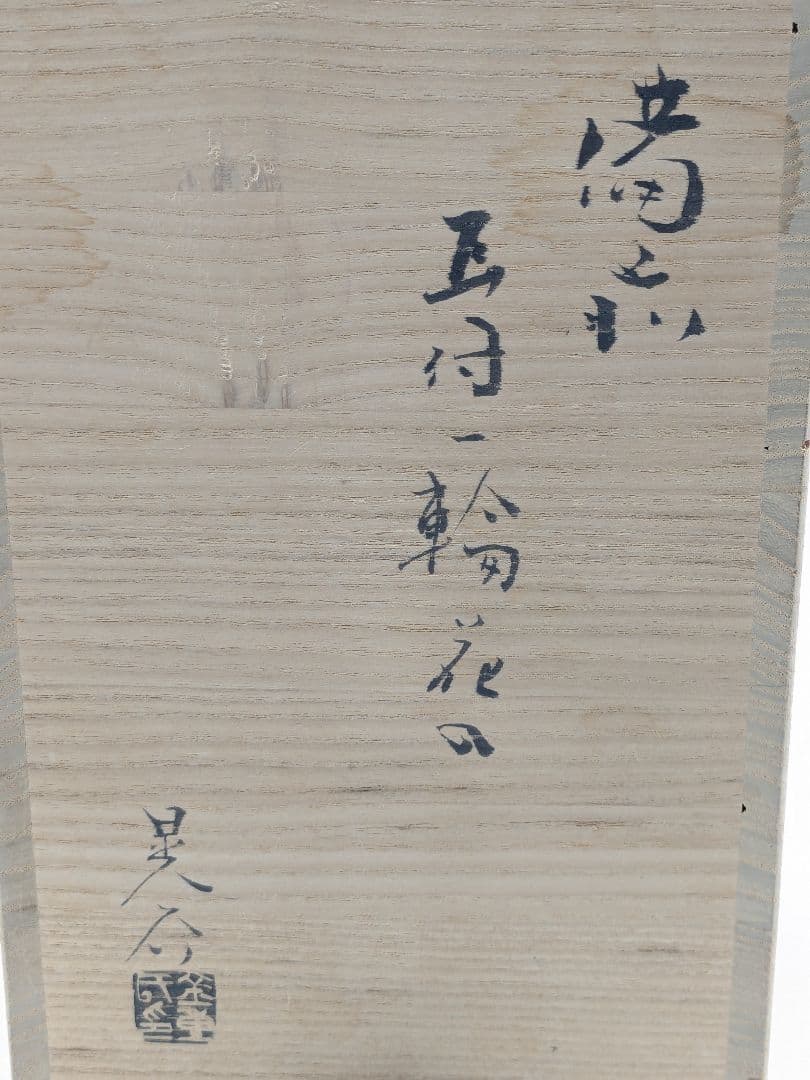 備前
耳付一輪花入
晃介